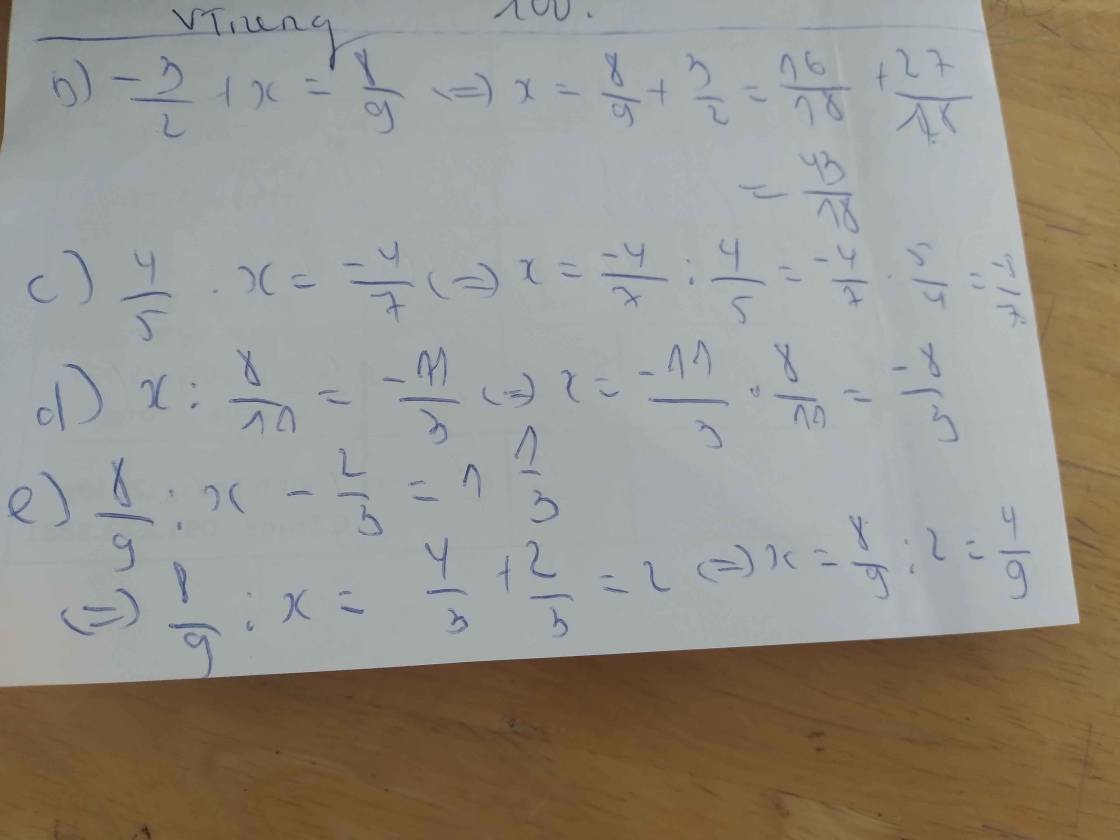 VTrueng 100.
b) -3/2 + x = 8/9 <=> x = 8/9 + 3/2 = 16/18 + 27/18
= 43/18
c) 4/5 . x = -4/7 <=> x = -4/7 : 4/5 = -4/7 . 5/4 = -5/7
d) x : 8/11 = -11/3 <=> x = -11/3 . 8/11 = -8/3
e) 8/9 : x - 2/3 = 1 1/3
<=> 8/9 : x = 4/3 + 2/3 = 2 <=> x = 8/9 : 2 = 4/9